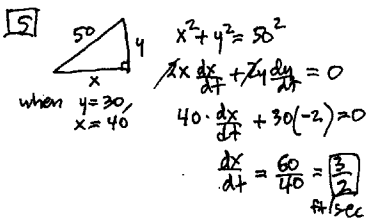 5
50
y
x
when y=30,
x=40
x²+y²=50²
2x dx/dt + 2y dy/dt = 0
40 · dx/dt + 30(-2)=0
dx/dt = 60/40 = 3/2
ft/sec